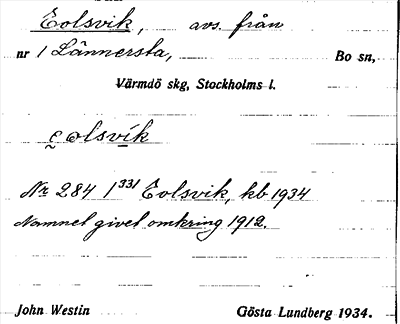 Eolsvik, avs. från
nr 1 Lännersta, Bo sn,
Värmdö skg, Stockholms l.
eolsvik
Nr 284 1³³¹ Eolsvik, kb 1934
Namnet givet omkring 1912.
John Westin Gösta Lundberg 1934.